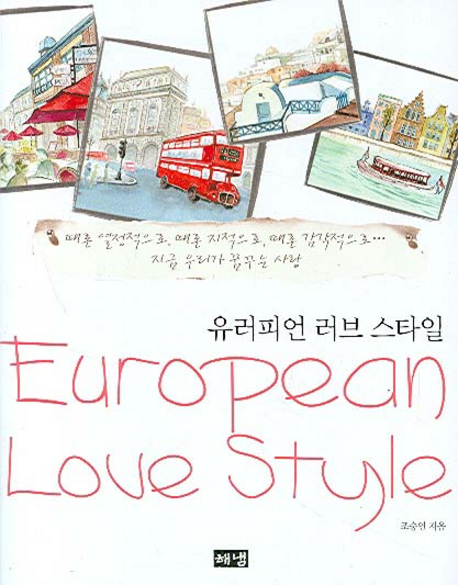 때론 열정적으로, 때론 지적으로, 때론 감각적으로…
지금 우리가 꿈꾸는 사랑
유러피언 러브 스타일
European
Love Style
조승연 지음
해냄